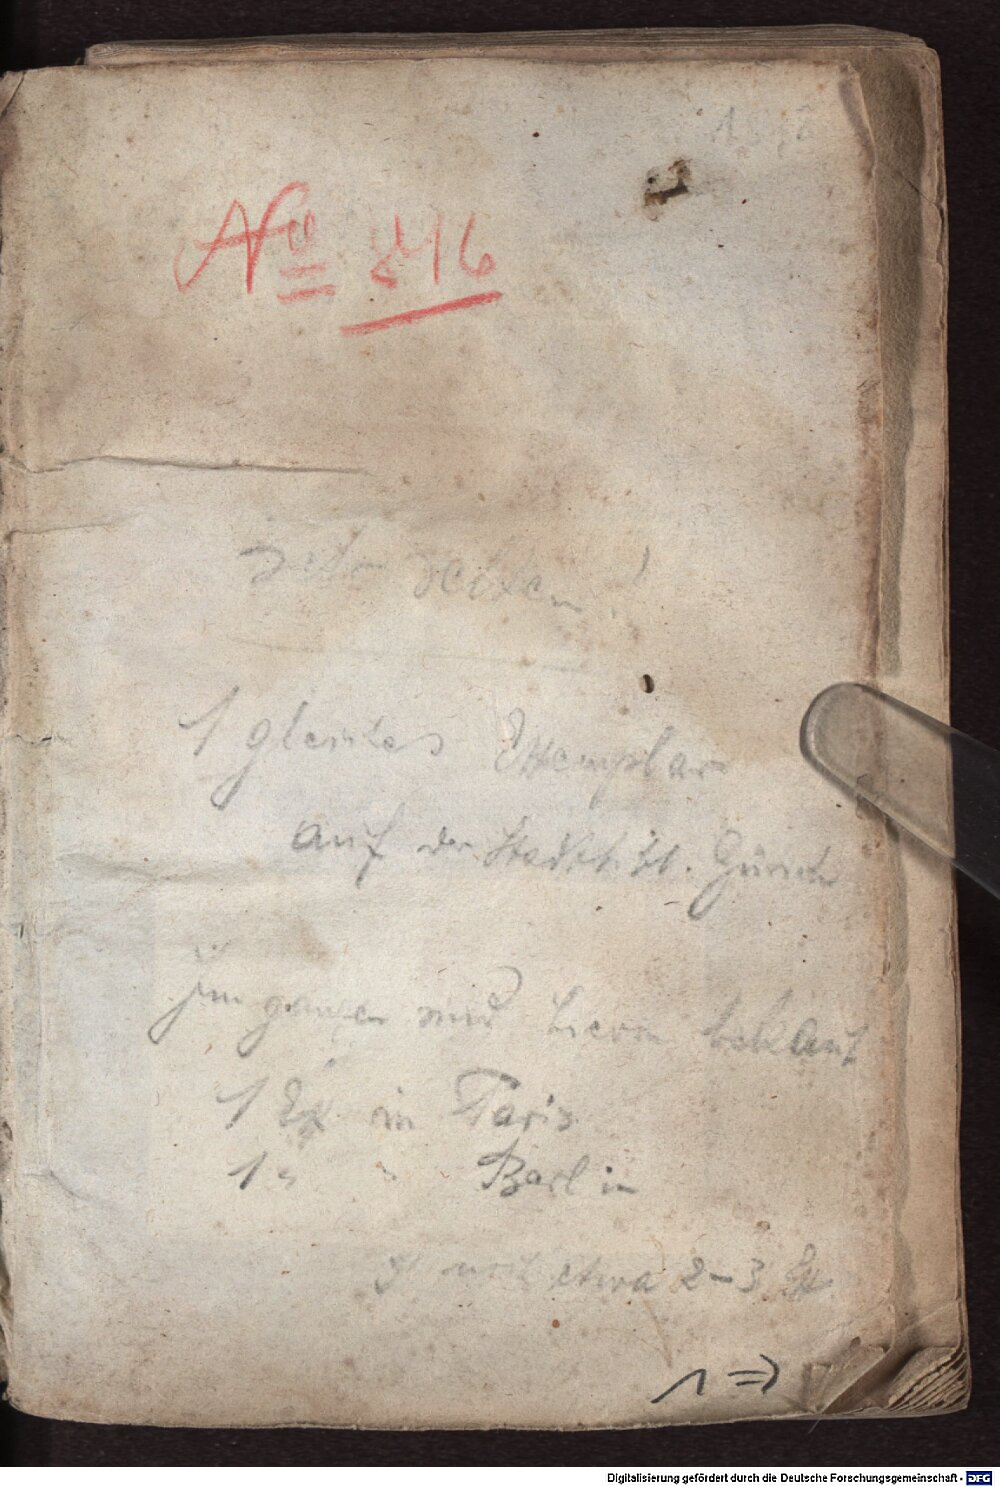 No 846
sehr selten!
1 gleiches Exemplar
auf der Stadtbibl. Zürich
Im ganzen sind hievon bekant
1 Ex in Paris
1 " " Berlin
u noch etwa 2–3 Ex
Digitalisierung gefördert durch die Deutsche Forschungsgemeinschaft - DFG